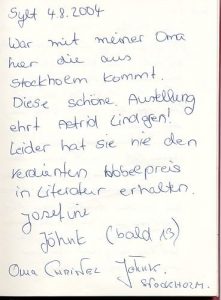 Sylt 4.8.2004
War mit meiner Oma
hier die aus
Stockholm kommt.
Diese schöne Austellung
ehrt Astrid Lindgren!
Leider hat sie nie den
verdienten Nobelpreis
in Literatur erhalten.
Josefine
Jöhnk (bald 13)
Oma Jöhnk.
STOCKHOLM.